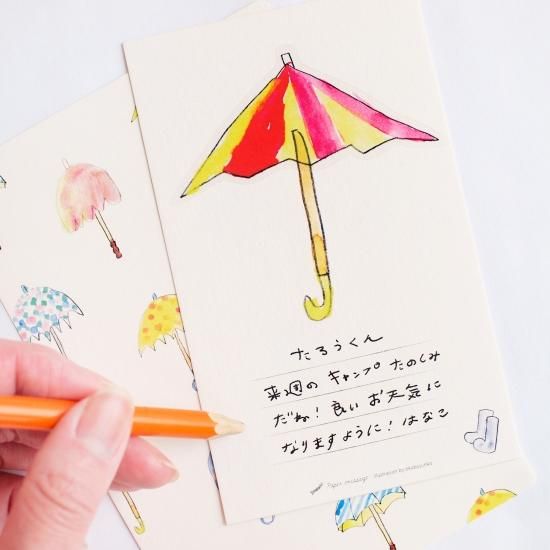 たろうくん
来週の キャンプ たのしみ
だね! 良い お天気に
なりますように! はなこ
Paper message